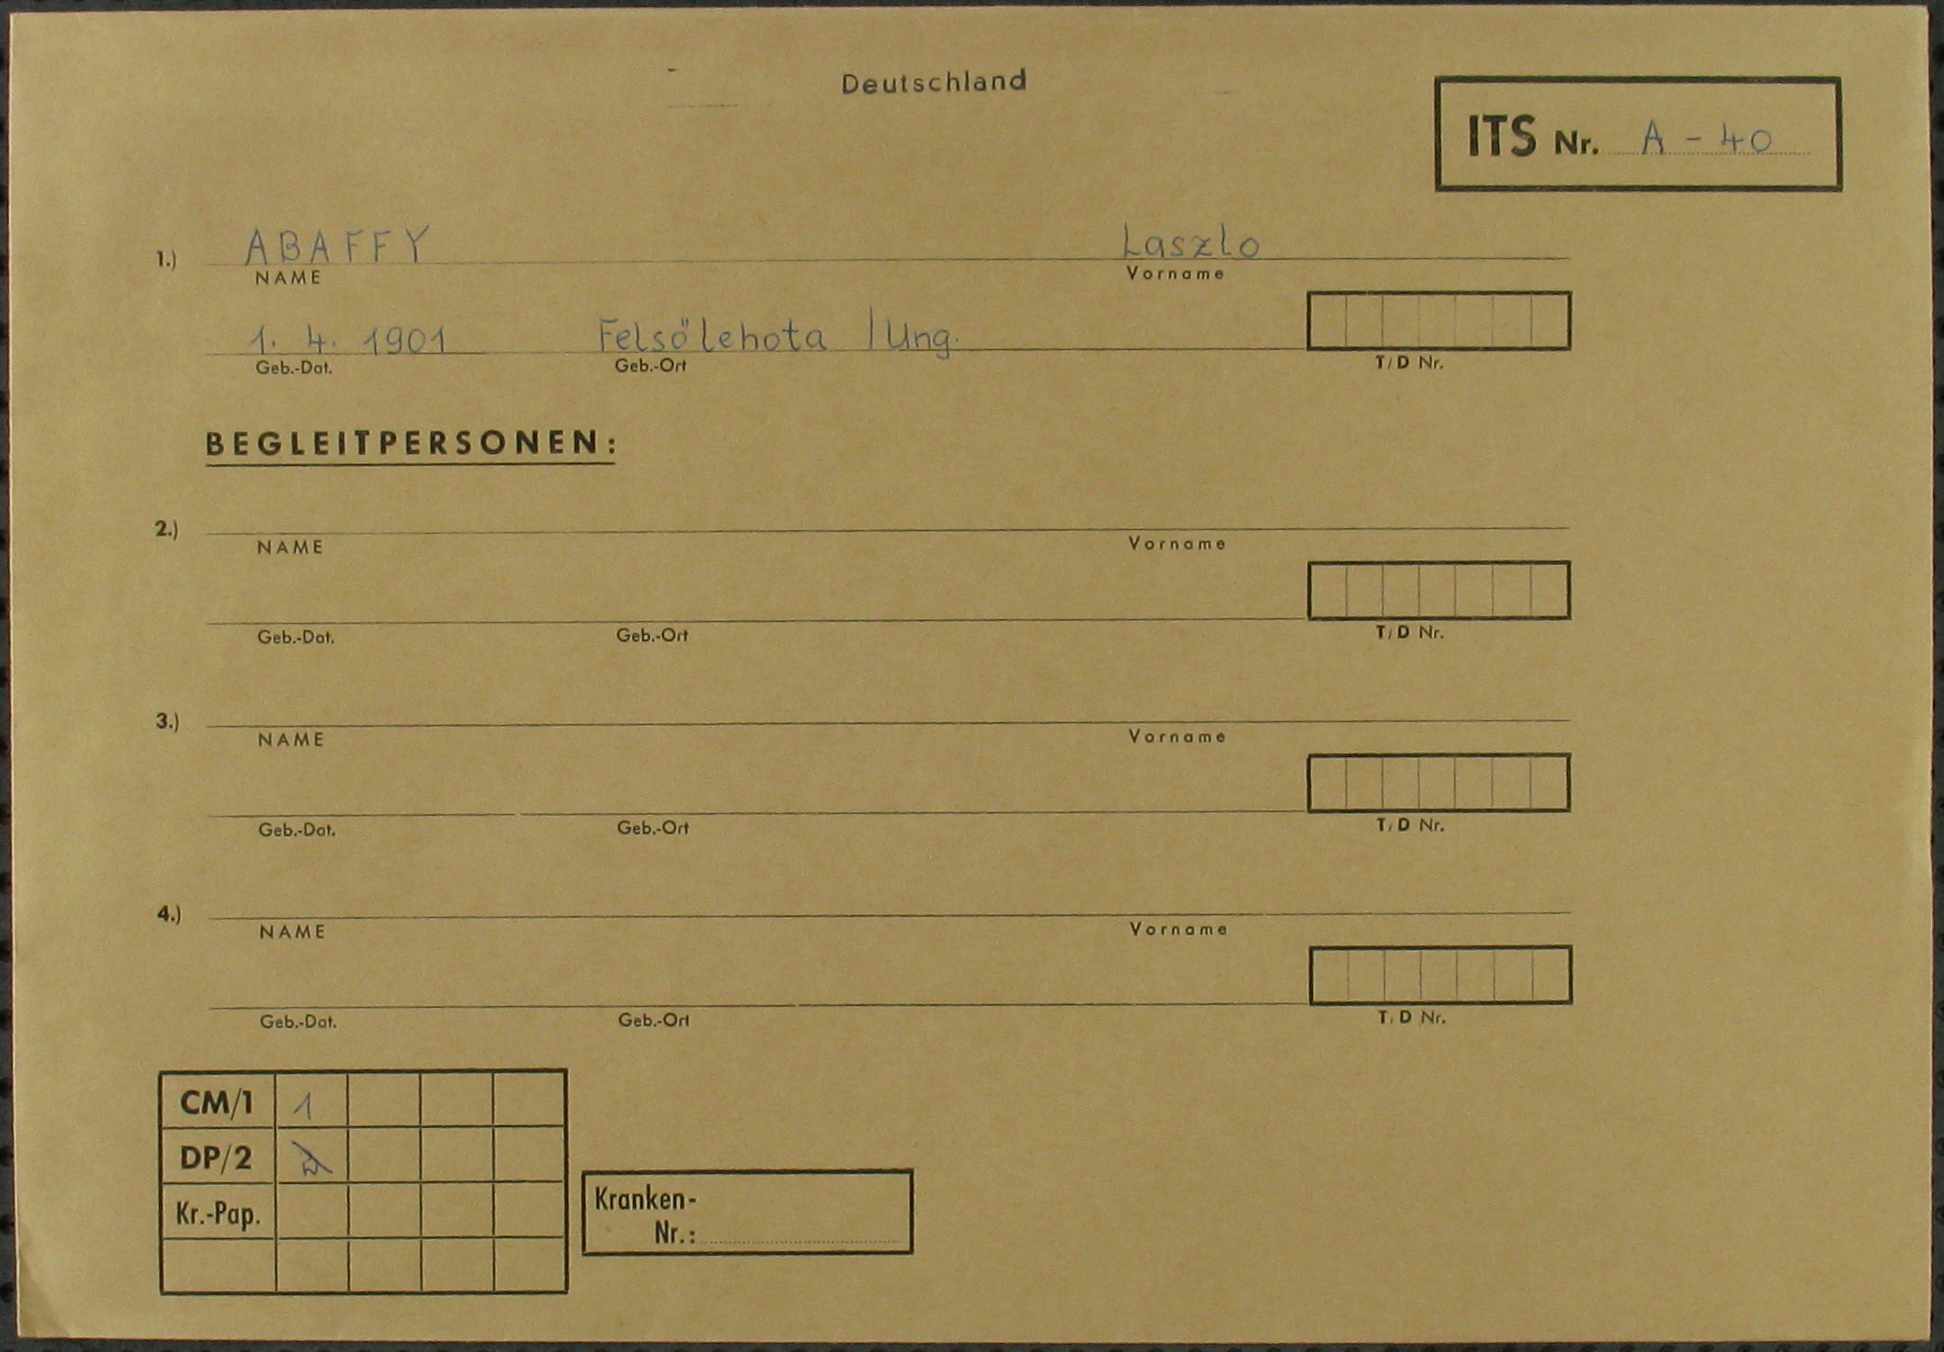 Deutschland
ITS Nr. A - 40
1.) ABAFFY Laszlo
NAME Vorname
1. 4. 1901 Felsölehota /Ung.
Geb.-Dat. Geb.-Ort T/D Nr.
BEGLEITPERSONEN:
2.)
NAME Vorname
Geb.-Dat. Geb.-Ort T/D Nr.
3.)
NAME Vorname
Geb.-Dat. Geb.-Ort T/D Nr.
4.)
NAME Vorname
Geb.-Dat. Geb.-Ort T/D Nr.
CM/1 1
DP/2
Kr.-Pap.
Kranken-
Nr.: